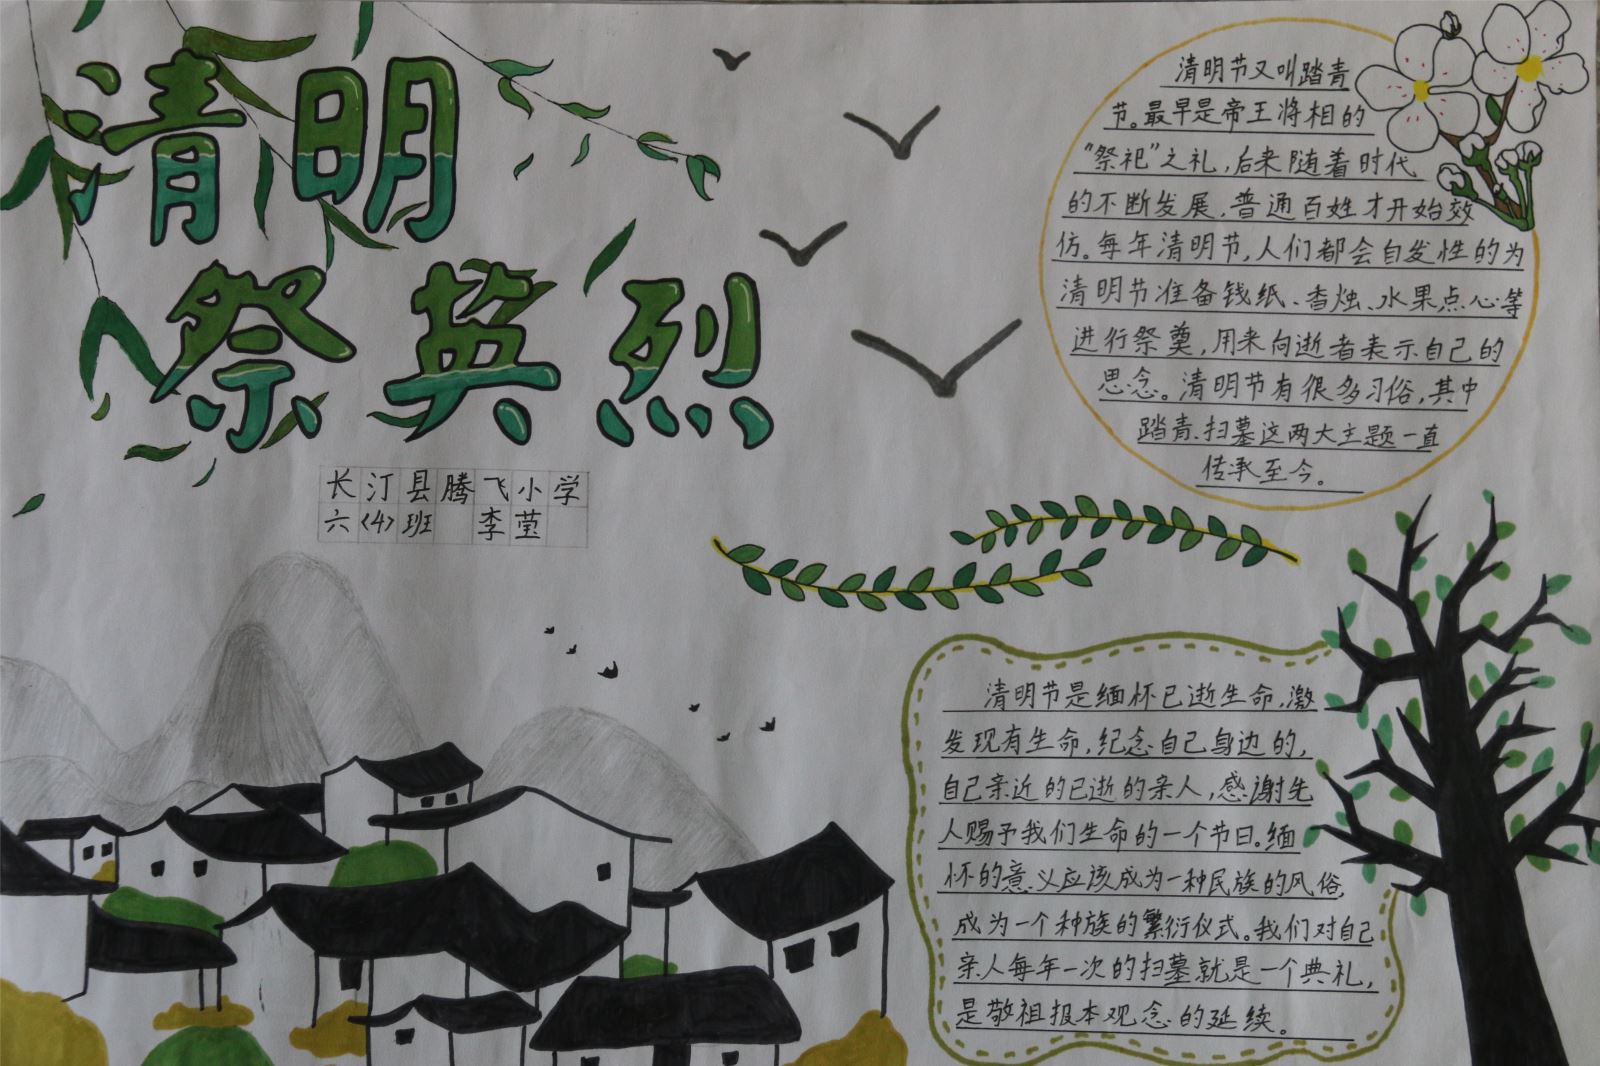 清明
祭英烈
长汀县腾飞小学
六<4>班 李莹
清明节又叫踏青
节。最早是帝王将相的
“祭祀”之礼,后来随着时代
的不断发展,普通百姓才开始效
仿。每年清明节,人们都会自发性的为
清明节准备钱纸、香烛、水果点心等
进行祭奠,用来向逝者表示自己的
思念。清明节有很多习俗,其中
踏青、扫墓这两大主题一直
传承至今。
清明节是缅怀已逝生命,激
发现有生命,纪念自己身边的,
自己亲近的已逝的亲人,感谢先
人赐予我们生命的一个节日。缅
怀的意义应该成为一种民族的风俗,
成为一个种族的繁衍仪式。我们对自己
亲人每年一次的扫墓就是一个典礼,
是敬祖报本观念的延续。